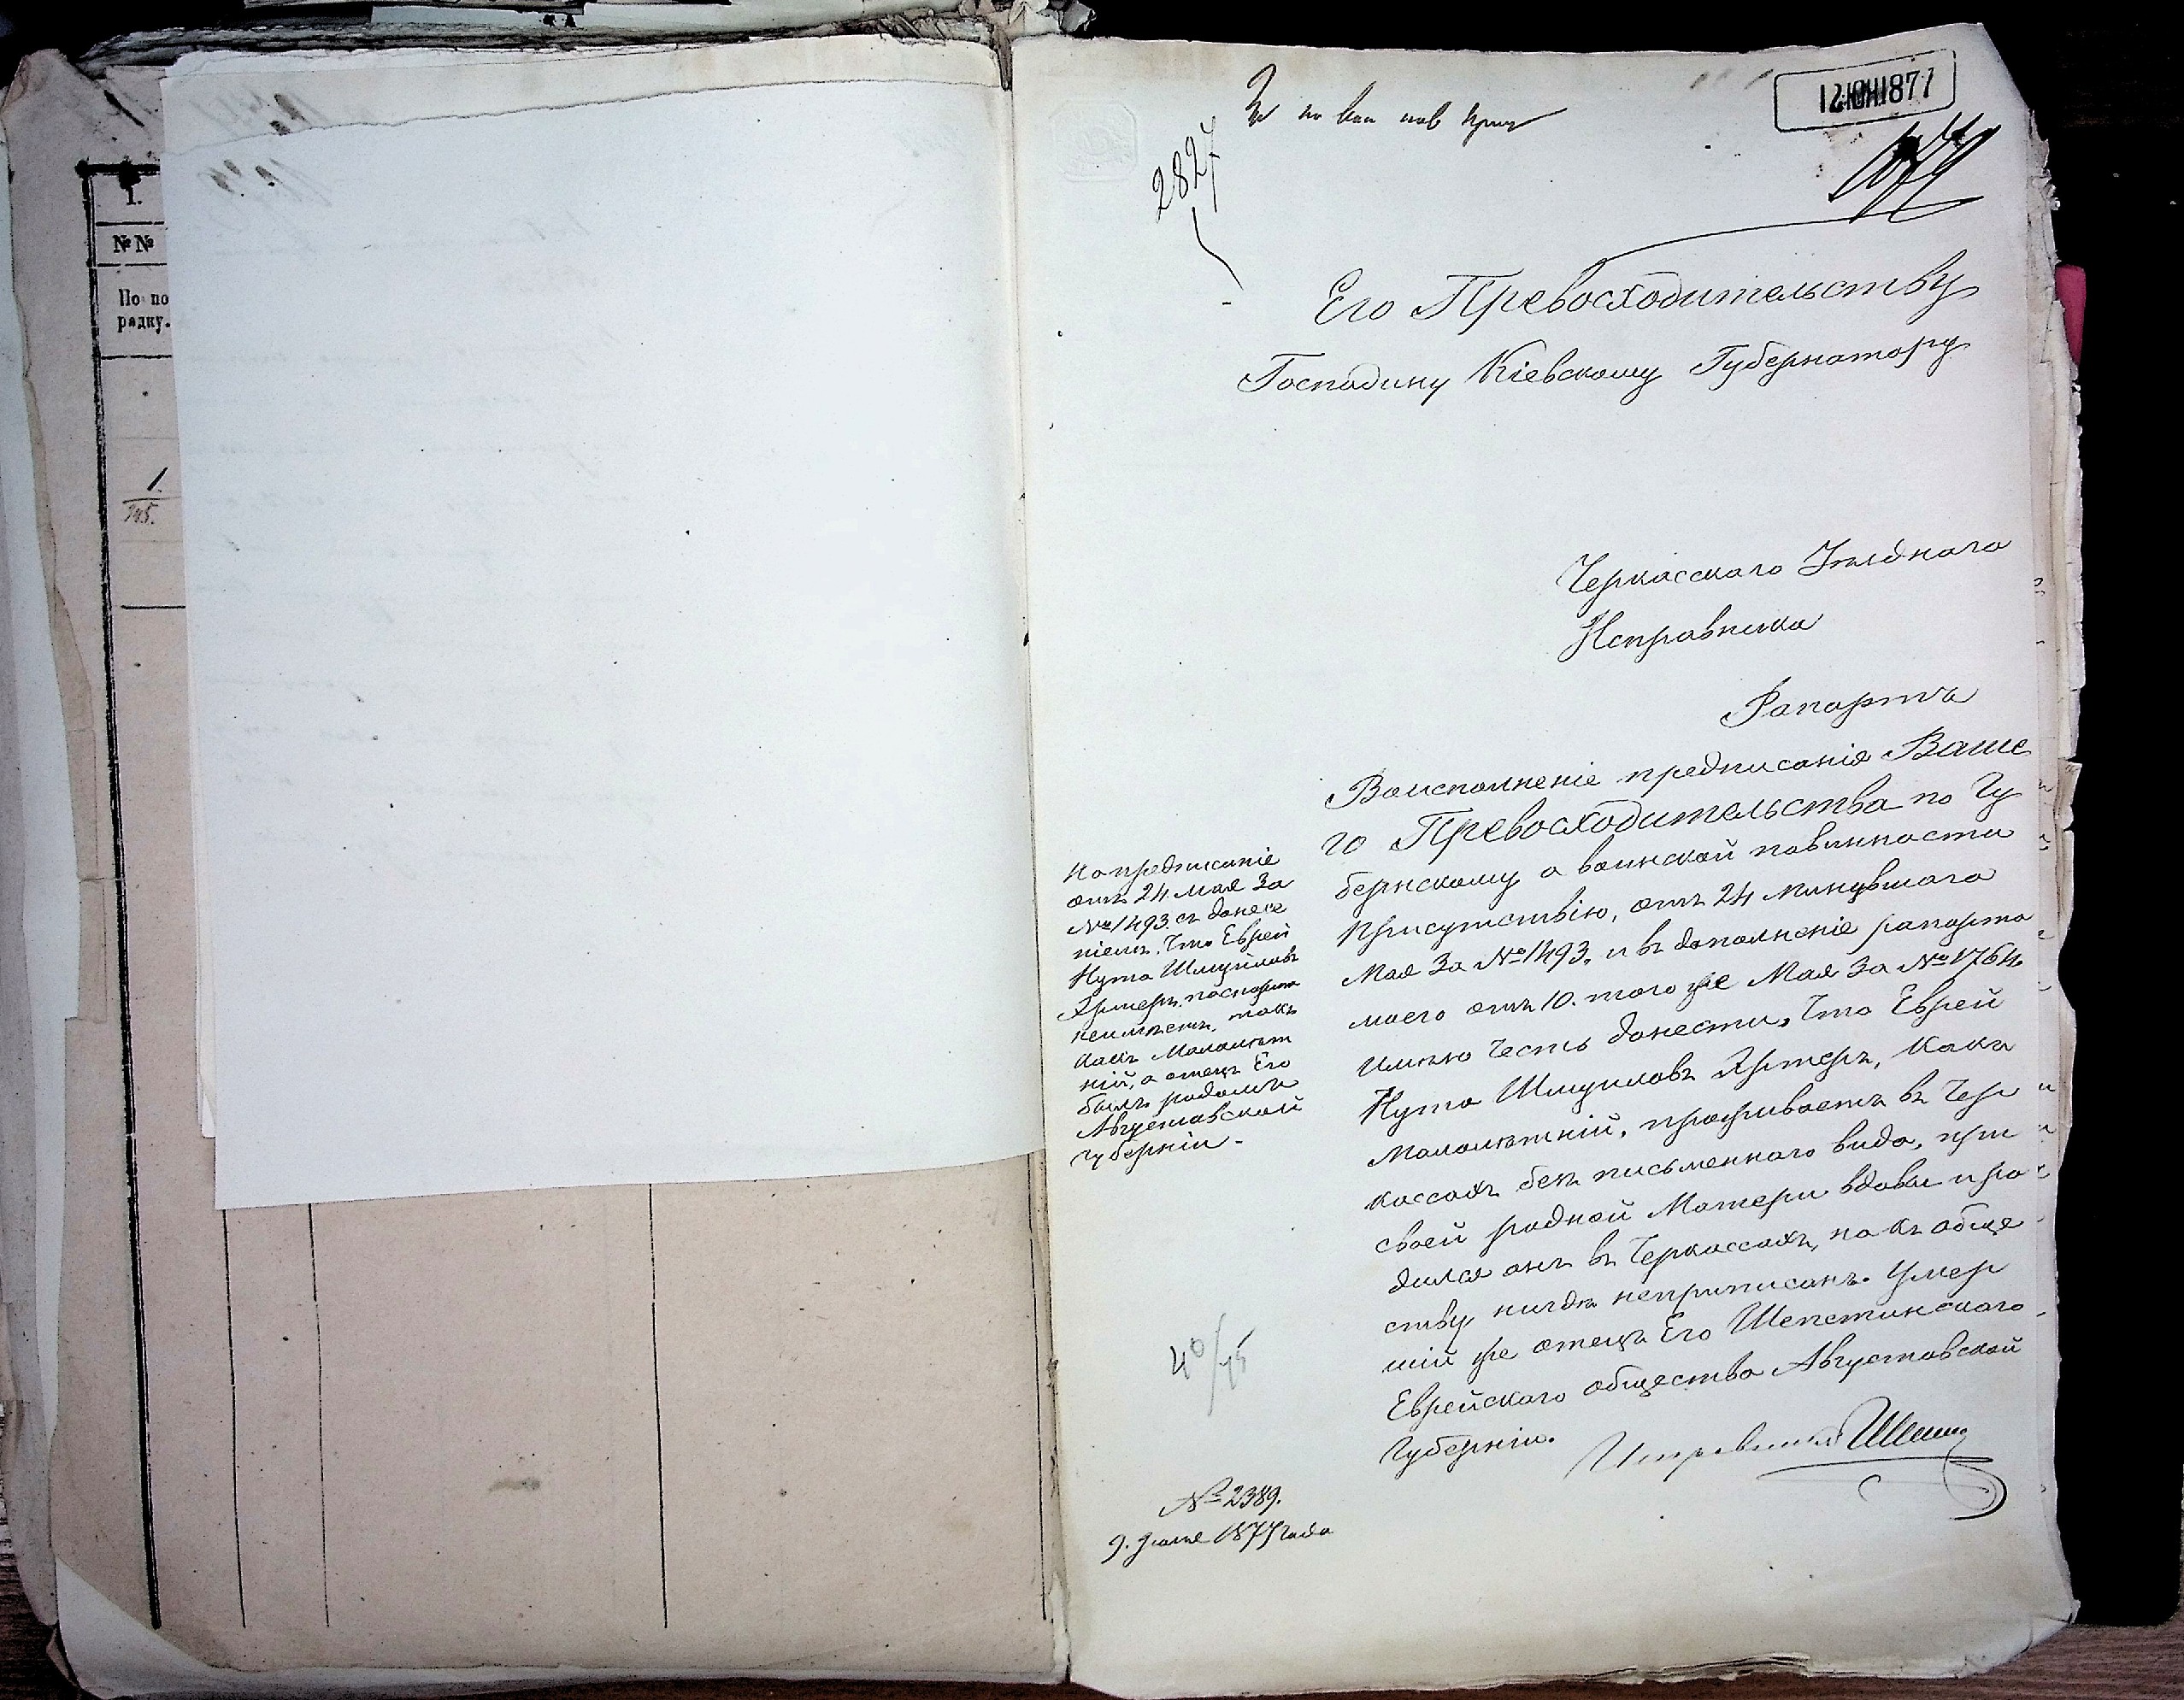 1.
№№
По по
рядку.
1.
12 ЮН 1877
2827
Его Превосходительству
Господину Кіевскому Губернатору
Черкасскаго Уѣзднаго
Исправника
Рапортъ
Воисполненіе предписанія Ваше
го Превосходительства по Гу
бернскому о воинской повинности
Присутствію, отъ 24 минувшаго
Мая За № 1493, и въ дополненіе рапорта
моего отъ 10. того же Мая За № 1764
имѣю честь донести, что Еврей
Нута Шмуиловъ Яртеръ, какъ
Малолѣтній, проживаетъ въ Чер
кассахъ безъ письменнаго вида, при
своей родной Матери вдовы и ро
дился онъ въ Черкассахъ, но къ обще
ству нигдѣ неприписанъ. Умер
шій же отецъ Его Шепетинскаго
Еврейскаго общества Августовской
Губерніи.
Исправникъ
На предписаніе
отъ 24 Мая За
№ 1493. съ донесе
ніемъ, что Еврей
Нута Шмуиловъ
Яртеръ, паспорта
неимѣетъ, такъ
какъ Малолѣт
ній, а отецъ Его
былъ родомъ
Августовской
губерніи -
40/75
№ 2389.
9. Іюня 1877 года